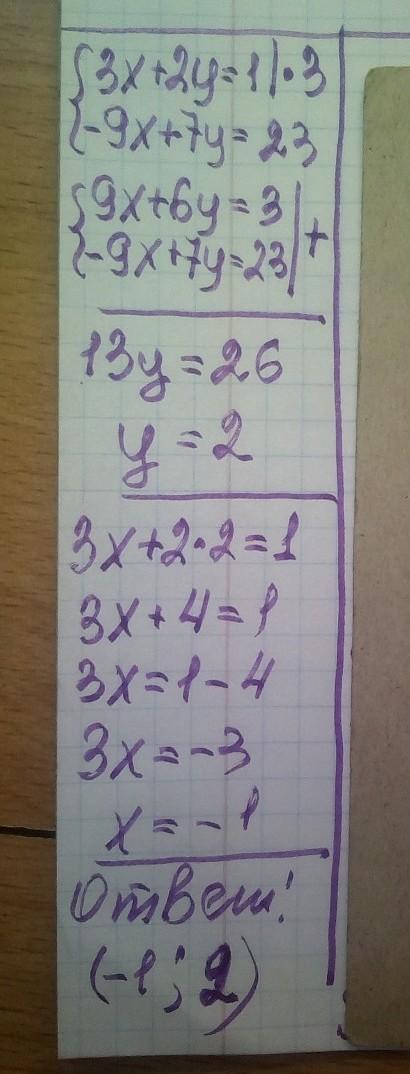 3x+2y=1|·3
-9x+7y=23
9x+6y=3
-9x+7y=23|+
13y=26
y=2
3x+2·2=1
3x+4=1
3x=1-4
3x=-3
x=-1
Ответ:
(-1;2)